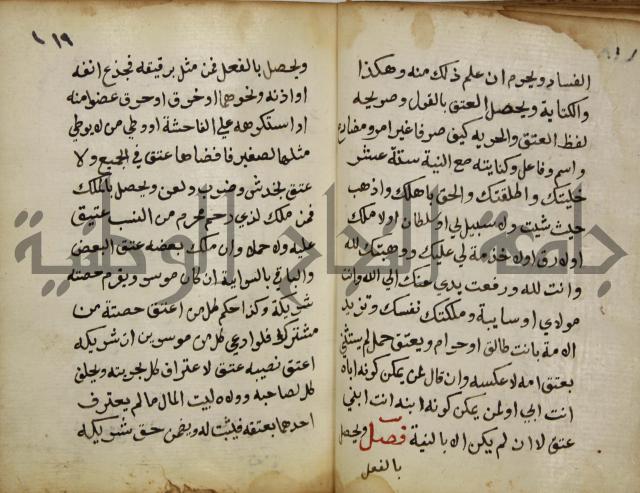 الفساد ويحرم ان علم ذلك منه وهكذا
والكتابة ويحصل العتق بالقول وصريحه
لفظ العتق والحرية كيف صرفا غير امر ومضارع
واسم فاعل وكنايته مع النية ستة عشر
خليتك واطلقتك والحق باهلك واذهب
حيث شيت ولا سبيل لي او سلطان او لا ملك
او لا رق او لا خدمة لي عليك ووهبتك لله
وانت لله ورفعت يدي عنك الى الله وانت
مولاي او سايبة وملكتك نفسك وتزيد
الامة بانت طالق او حرام ويعتق حمل لم يستثن
بعتق امه لا عكسه وان قال لمن يمكن كونه اباه
انت ابي او لمن يمكن كونه ابنه انت ابني
عتق لا ان لم يمكن الا بالنية فصل ويحصل
بالفعل
١١٩
ويحصل بالفعل فمن مثل برقيقه فجذع انفه
او اذنه ونحوهما او خرق او حرق عضوا منه
او استكرهه على الفاحشة او وطئ من لا يوطى
مثلها لصغير فافضاها عتق في الجميع ولا
عتق بخدش وضرب ولعن ويحصل بالملك
فمن ملك لذي رحم محرم من النسب عتق
عليه ولو حملا وان ملك بعضه عتق البعض
والباقي بالسراية ان كان موسرا ويغرم حصة
شريكه وكذا حكم كل من اعتق حصته من
مشترك فلو ادعى كل من موسرين ان شريكه
اعتق نصيبه عتق لاعتراف كل بحريته ويحلف
كل لصاحبه وولاه لبيت المال مالم يعترف
احدهما بعتقه فيثبت له ويضمن حق شريكه
جامعة النجاح الوطنية